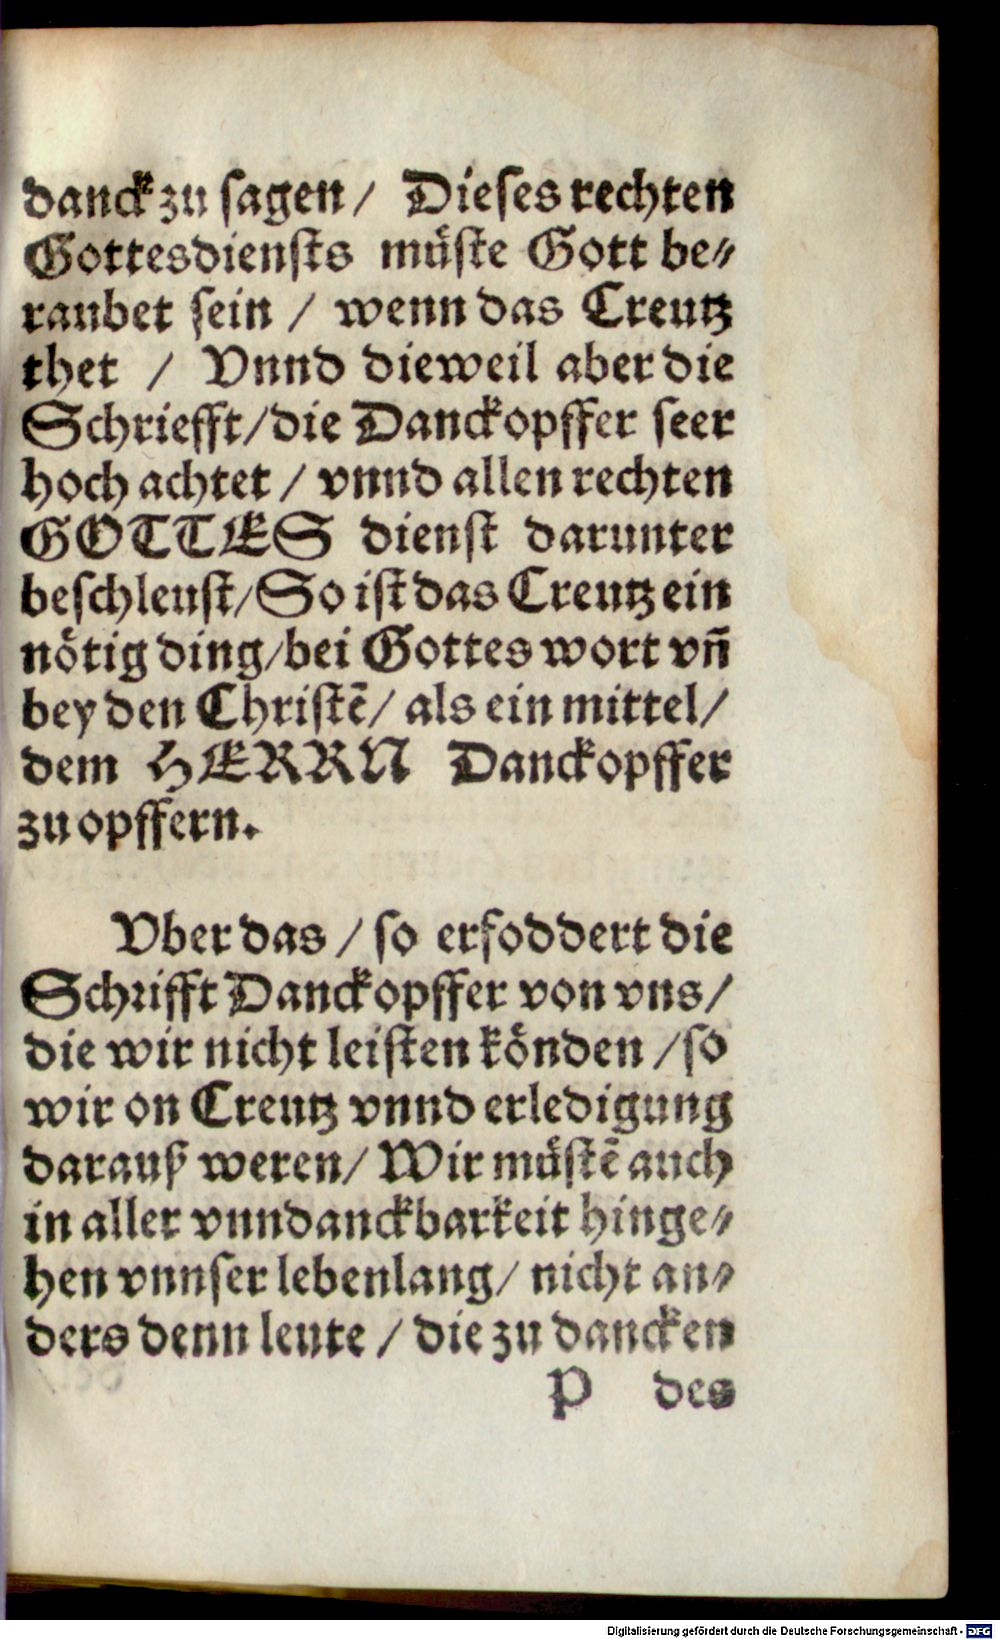 danck zu sagen / Dieses rechten
Gottesdiensts müste Gott be⸗
raubet sein / wenn das Creutz
thet / Vnnd dieweil aber die
Schriefft / die Danckopffer seer
hoch achtet / vnnd allen rechten
GOTTES dienst darunter
beschleust / So ist das Creutz ein
nötig ding / bei Gottes wort vn̄
bey den Christē / als ein mittel /
dem HERRN Danckopffer
zu opffern.
Vber das / so erfoddert die
Schrifft Danckopffer von vns /
die wir nicht leisten könden / so
wir on Creutz vnnd erledigung
darauß weren / Wir müstē auch
in aller vnndanckbarkeit hinge⸗
hen vnnser lebenlang / nicht an⸗
ders denn leute / die zu dancken
P des
Digitalisierung gefördert durch die Deutsche Forschungsgemeinschaft - DFG